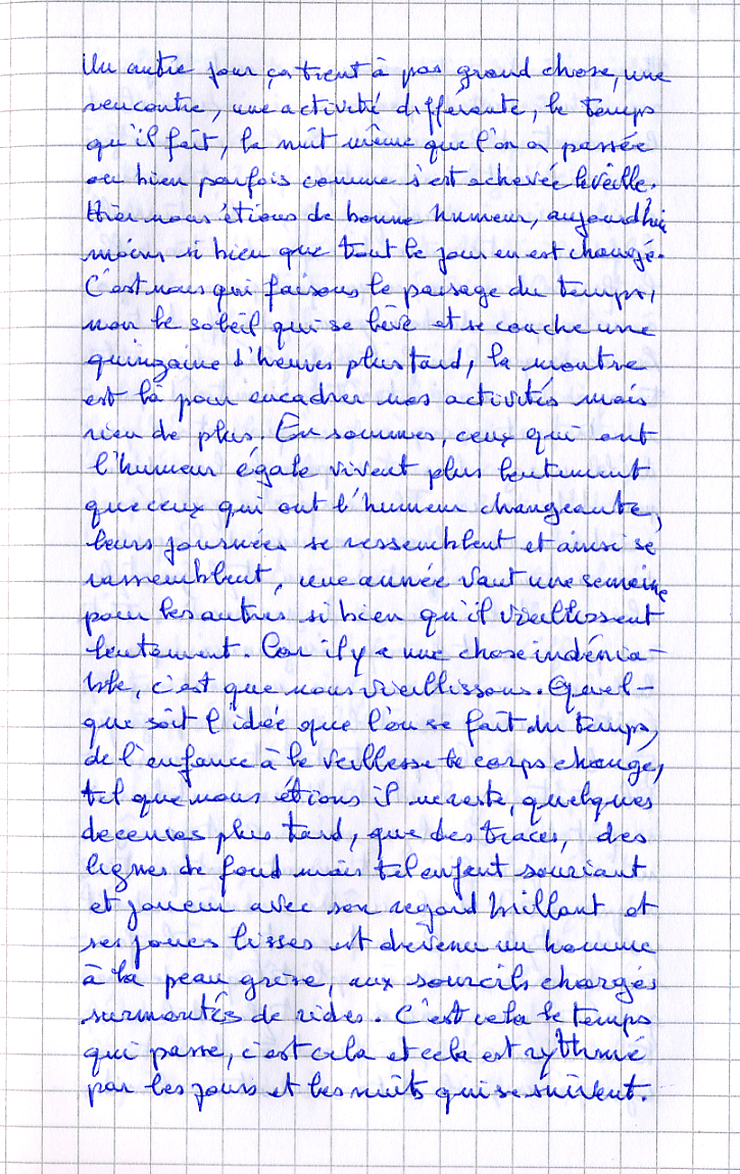 Un autre jour ça tient à pas grand chose, une
rencontre, une activité différente, le temps
qu'il fait, la nuit même que l'on a passée
ou bien parfois comme s'est achevée la veille.
Hier nous étions de bonne humeur, aujourd'hui
moins si bien que tout le jour en est changé.
C'est nous qui faisons le paysage du temps,
non le soleil qui se lève et se couche une
quinzaine d'heures plus tard, la montre
est là pour encadrer nos activités mais
rien de plus. En sommes, ceux qui ont
l'humeur égale vivent plus lentement
que ceux qui ont l'humeur changeante,
leurs journées se ressemblent et ainsi se
rassemblent, une année vaut une semaine
pour les autres si bien qu'il vieillissent
lentement. Car il y a une chose indénia-
ble, c'est que nous vieillissons. Quel-
que soit l'idée que l'on se fait du temps,
de l'enfance à la veillesse le corps change,
tel que nous étions il ne reste, quelques
décennies plus tard, que des traces, des
lignes de fond mais tel enfant souriant
et joueur avec son regard brillant et
ses joues lisses est devenu un homme
à la peau grise, aux sourcils chargés
surmontés de rides. C'est cela le temps
qui passe, c'est cela et cela est rythmé
par les jours et les nuits qui se suivent.